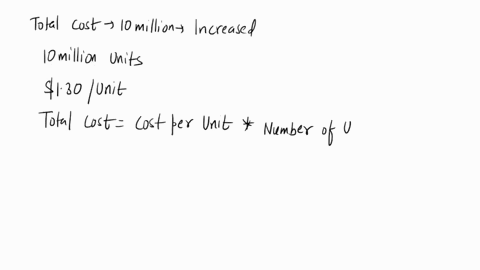 Total cost → 10 million → Increased
10 million Units
$1.30 / Unit
Total Cost = Cost per Unit * Number of U